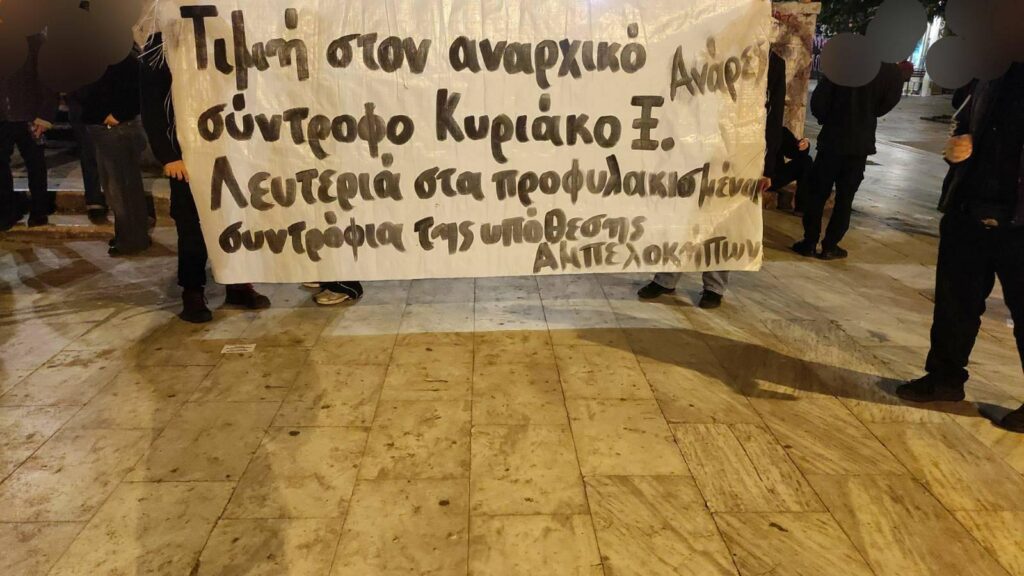 Τιμή στον αναρχικό
σύντροφο Κυριάκο Ξ.
Λευτεριά στα προφυλακισμένα
συντρόφια της υπόθεσης
Αμπελοκήπων
Ανάρες